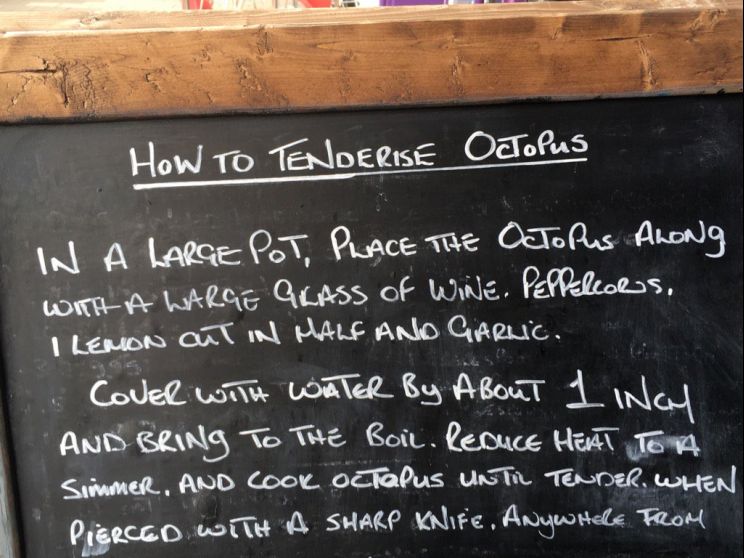 HOW TO TENDERISE OCTOPUS
IN A LARGE POT, PLACE THE OCTOPUS ALONG
WITH A LARGE GLASS OF WINE. PEPPERCORNS,
1 LEMON CUT IN HALF AND GARLIC.
COVER WITH WATER BY ABOUT 1 INCH
AND BRING TO THE BOIL. REDUCE HEAT TO A
SIMMER, AND COOK OCTOPUS UNTIL TENDER. WHEN
PIERCED WITH A SHARP KNIFE, ANYWHERE FROM